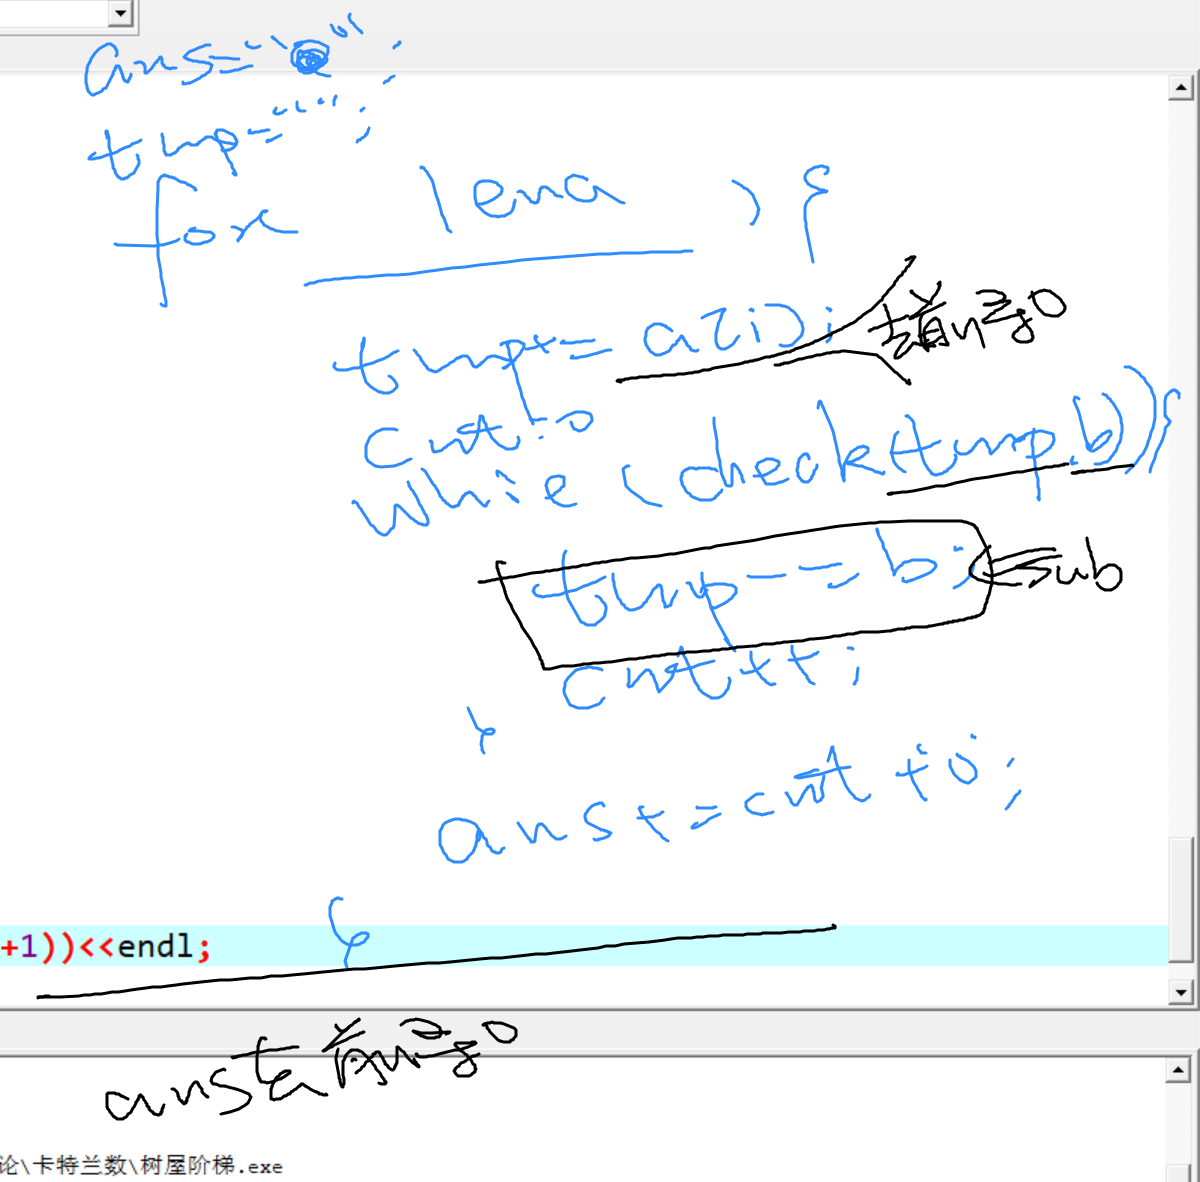 ans="";
tmp="";
for lena ){
tmp+= a[i]; 去前导0
cnt=0
while (check(tmp,b)){
tmp-=b; sub
cnt++;
}
ans+=cnt+'0';
}
+1))<<endl;
ans去前导0
论\卡特兰数\树屋阶梯.exe